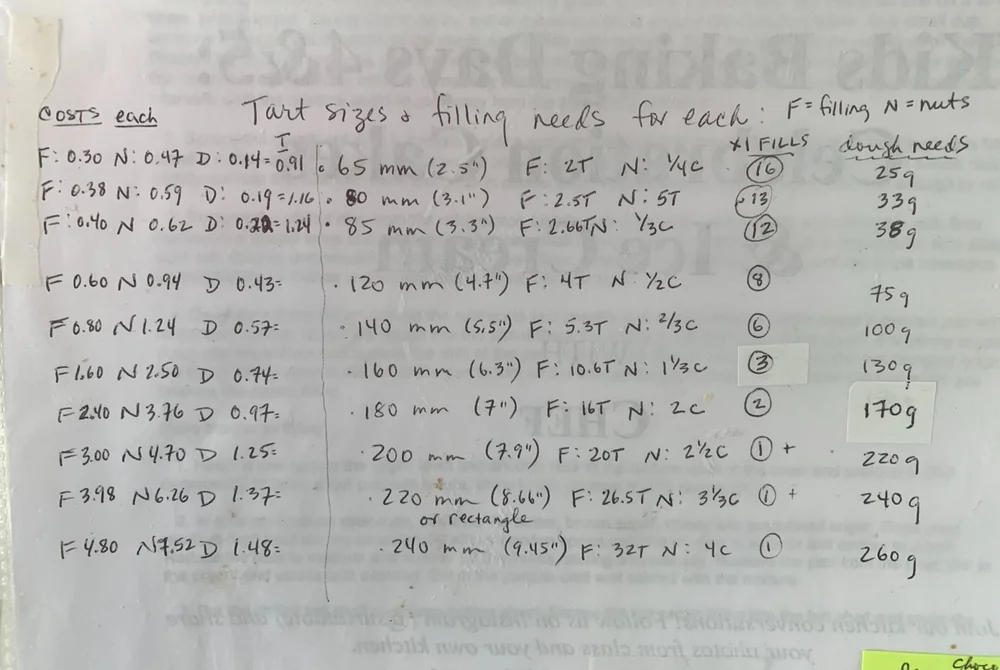 COSTS each Tart sizes & filling needs for each: F = filling N = nuts
x1 FILLS dough needs
F: 0.30 N: 0.47 D: 0.14 = 0.91 • 65 mm (2.5") F: 2T N: 1/4C (16) 25g
F: 0.38 N: 0.59 D: 0.19 = 1.16 • 80 mm (3.1") F: 2.5T N: 5T 13 33g
F: 0.40 N 0.62 D: 0.22 = 1.24 • 85 mm (3.3") F: 2.66T N: 1/3C (12) 38g
F 0.60 N 0.94 D 0.43= • 120 mm (4.7") F: 4T N: 1/2C (8) 75g
F 0.80 N 1.24 D 0.57= • 140 mm (5.5") F: 5.3T N: 2/3C (6) 100g
F 1.60 N 2.50 D 0.74= • 160 mm (6.3") F: 10.6T N: 1 1/3C (3) 130g
F 2.40 N 3.76 D 0.97= • 180 mm (7") F: 16T N: 2C (2) 170g
F 3.00 N 4.70 D 1.25= • 200 mm (7.9") F: 20T N: 2 1/2C (1) + 220g
F 3.98 N 6.26 D 1.37= • 220 mm (8.66") F: 26.5T N: 3 1/3C (1) + 240g
or rectangle
F 4.80 N 7.52 D 1.48= • 240 mm (9.45") F: 32T N: 4C (1) 260g
Kids Baking Days 4&5:
& Ice Cream
WITH
CHEF
Choco